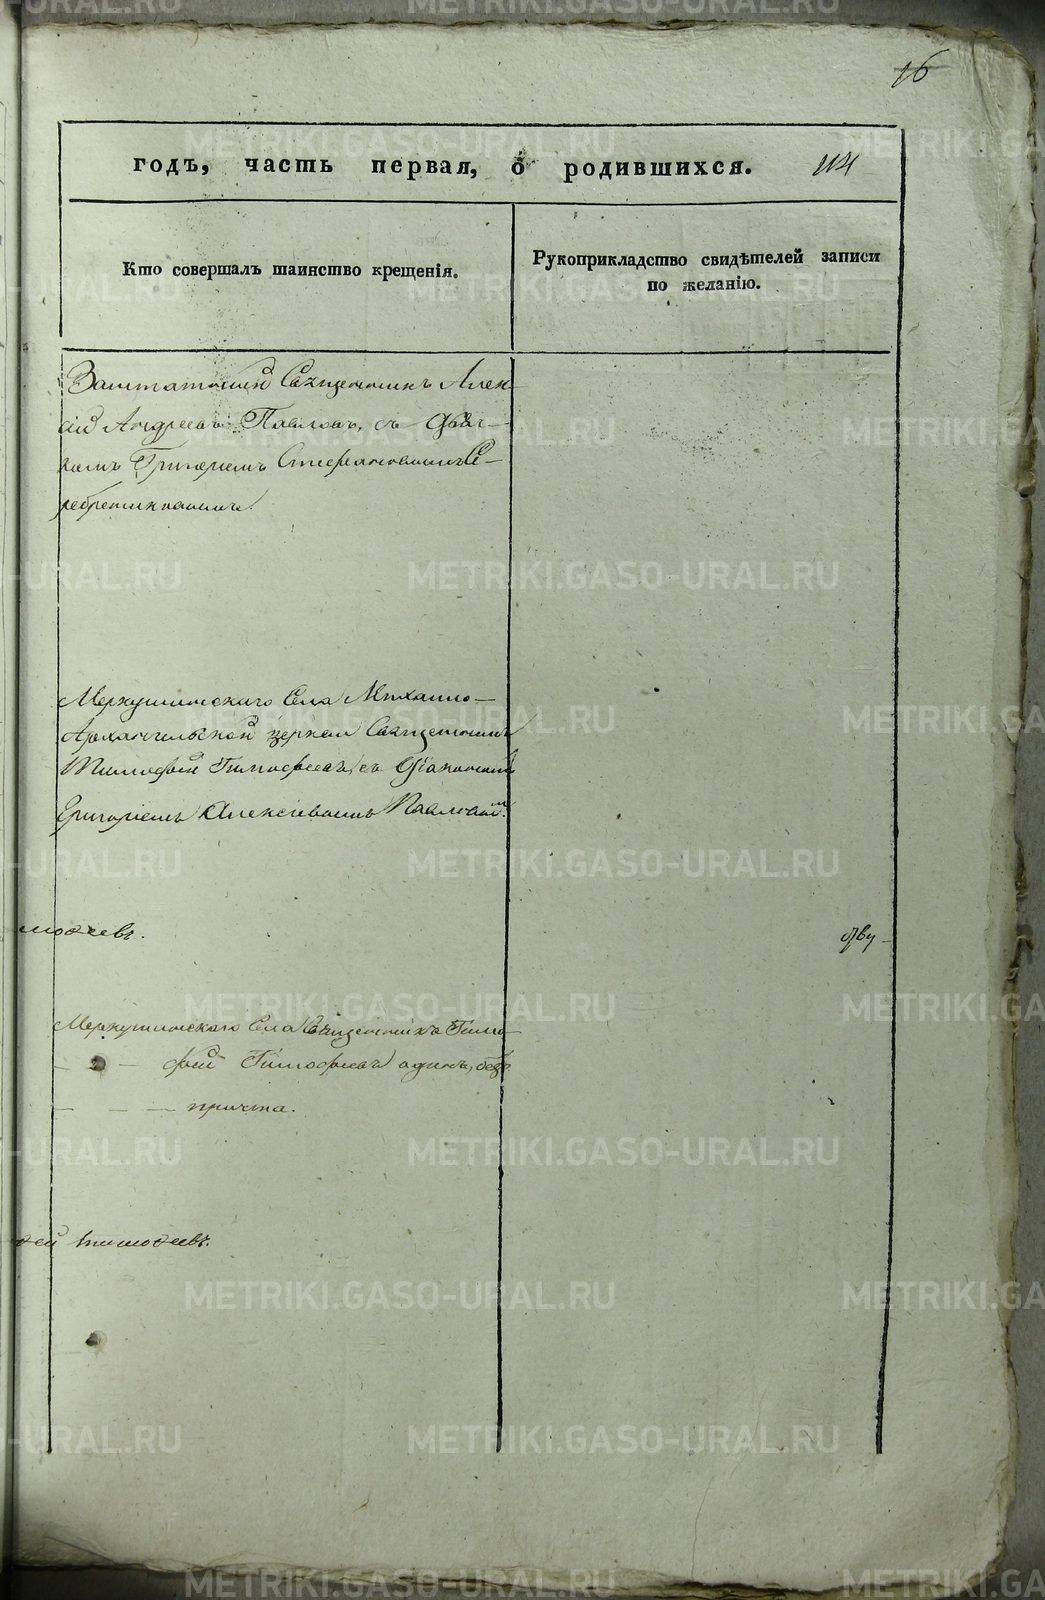 16
годъ, часть первая, о родившихся. 114
Кто совершалъ таинство крещенія.
Рукоприкладство свидѣтелей записи
по желанію.
Заштатный Священникъ Алек-
сій Андреевъ Павловъ, съ Дьяч-
комъ Григоріемъ Стефановымъ Се-
ребренниковымъ.
Меркушинскаго Села Михаило-
Архангельской церкви Священникъ
Тимофей Тимофеевъ, съ Діакономъ
Григоріемъ Алексіевымъ Павловым.
мофеевъ.
дву-
Меркушинскаго Села Священникъ Тимо-
фей Тимофеевъ одинъ, безъ
причта.
фей Тимофеевъ.
METRIKI.GASO-URAL.RU